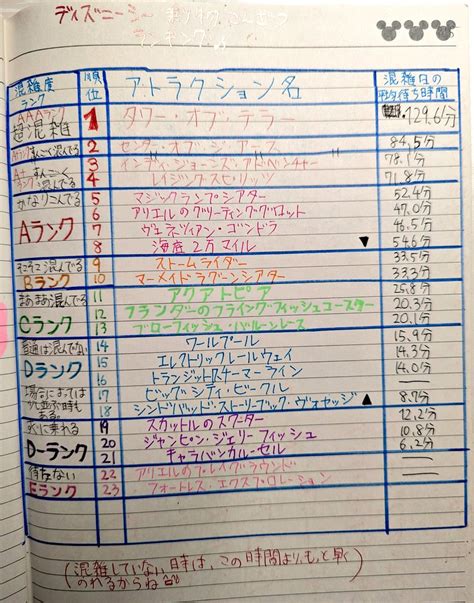 ディズニーシー
ランキング
混雑度ランク 順位 アトラクション名 混雑日の平均待ち時間
AAAランク 超混雑 1 タワー・オブ・テラー 129.6分
2 センター・オブ・ジ・アース 84.5分
3 インディ・ジョーンズ・アドベンチャー 78.1分
すんごく混んでる 4 レイジングスピリッツ 71.8分
かなりこんでる 5 マジックランプシアター 52.4分
Aランク 6 アリエルのグリーティンググロット 47.0分
7 ヴェネツィアン・ゴンドラ 46.5分
8 海底2万マイル 54.6分
そこそこ混んでる 9 ストームライダー 33.5分
Bランク 10 マーメイドラグーンシアター 33.3分
まあまあ混んでる 11 アクアトピア 25.8分
Cランク 12 フランダーのフライングフィッシュコースター 20.3分
13 ブローフィッシュ・バルーンレース 20.1分
普通は混んでない 14 ワールプール 15.9分
Dランク 15 エレクトリックレールウェイ 14.3分
16 トランジットスチーマーライン 14.0分
場合によっては少し並ぶ時もある。 17 ビッグシティ・ビークル
18 シンドバッド・ストーリーブック・ヴォヤッジ 8.7分
すぐに乗れる 19 スカットルのスクーター 12.2分
D-ランク 20 ジャンピン・ジェリーフィッシュ 10.8分
21 キャラバンカルーセル 6.2分
待たない 22 アリエルのプレイグラウンド
Eランク 23 フォートレス・エクスプロレーション
(混雑していない時は、この時間よりもっと早く
のれるからね)